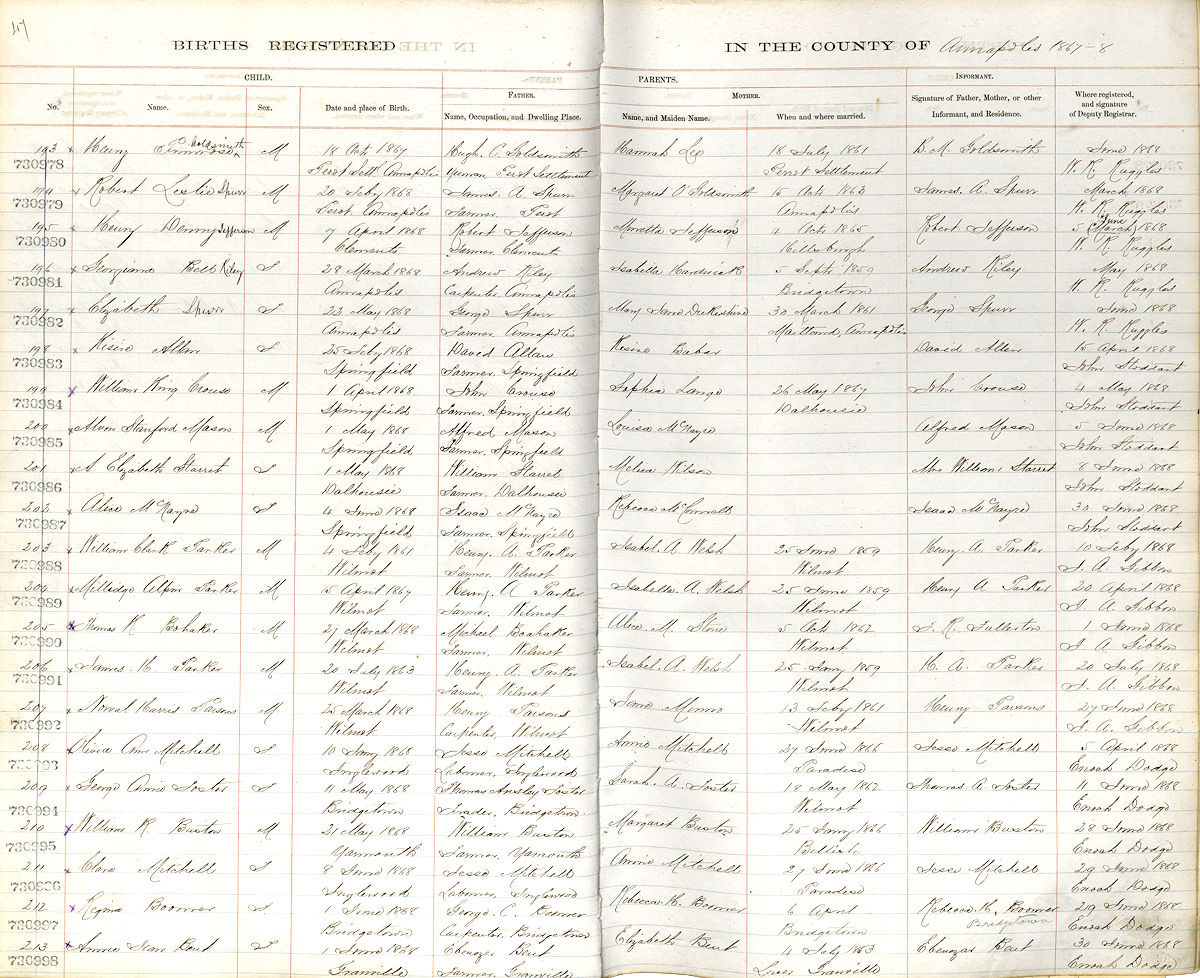 47
BIRTHS REGISTERED IN THE COUNTY OF Annapolis 1867-8
CHILD. PARENTS. INFORMANT.
FATHER. MOTHER.
No. Name. Sex. Date and place of Birth. Name, Occupation, and Dwelling Place. Name, and Maiden Name. When and where married. Signature of Father, Mother, or other Informant, and Residence. Where registered, and signature of Deputy Registrar.
193 x Henry Goldsmith M 18 Octr 1867 Hugh. C. Goldsmith Hannah Lee 18 July 1861 D. M. Goldsmith June 1868
730978 Perot Settt. Annapolis Yeoman, Perot Settlement Perrot Settlement W. R. Ruggles
194 x Robert Leslie Spurr M 20 Feby 1868 James. A. Spurr Margaret O Goldsmith 15 Octr 1863 James. A. Spurr March 1868
730979 Perot. Annapolis Farmer. Perot Annapolis W. R. Ruggles
195 x Henry Denny Jefferson M 7 April 1868 Robert Jefferson Minetta Jefferson 4 Octr 1865 Robert Jefferson 5 March June 1868
730980 Clements Farmer Clements Hillsburgh W. R. Ruggles
196 x Georgiana Bell Riley F 28 March 1868 Andrew Riley Isabella Hardwick 5 Septr 1859 Andrew Riley May 1868
730981 Annapolis Carpenter, Annapolis Bridgetown W. R. Ruggles
197 x Elizabeth Spurr F 23 May 1868 George Spurr Mary Jane 30 March 1861 George Spurr June 1868
730982 Annapolis Farmer. Annapolis Maitland, Annapolis W. R. Ruggles
198 x Kesine Allan F 25 Feby 1868 David Allan Kesine Babar David Allen 15 April 1868
730983 Springfield Farmer, Springfield John Stoddart
199 x William King Crouse M 1 April 1868 John Crouse Sophia Lange 26 May 1867 John Crouse 4 May 1868
730984 Springfield Farmer, Springfield Dalhousie John Stoddart
200 x Alvon Stanford Mason M 1 May 1868 Alfred Mason Louisa McNayre Alfred Mason 5 June 1868
730985 Springfield Farmer, Springfield John Stoddart
201 x A. Elizabeth Starret F 1 May 1868 William Starret Melisa Wilson Mrs William Starret 8 June 1868
730986 Dalhousie Farmer, Dalhousie John Stoddart
202 x Alice McNayre F 4 June 1868 Isaac McNayre Rebecca Isaac McNayre 30 June 1868
730987 Springfield Farmer, Springfield John Stoddart
203 x William Clark Parker M 4 Feby 1861 Henry. A. Parker Isabel. A. Welsh 25 June 1859 Henry. A. Parker 10 Feby 1868
730988 Wilmot Farmer, Wilmot Wilmot J. A. Gibbon
204 x Milledge Alpin Parker M 15 April 1867 Henry. A Parker Isabella A. Welsh 25 June 1859 Henry A Parker 20 April 1868
730989 Wilmot Farmer. Wilmot Wilmot J. A. Gibbon
205 x Thomas R Bohaker M 27 March 1868 Michael Boahaker Alice. M. Stone 5 Octr 1862 J. R. Fullerton 1 June 1868
730990 Wilmot Farmer, Wilmot Wilmot J. A Gibbon
206 x James. H. Parker M 20 July 1863 Henry. A. Parker Isabel. A. Welsh 25 Jany 1859 H. A. Parker 20 July 1868
730991 Wilmot Farmer, Wilmot Wilmot J. A. Gibbon
207 x Noval Harris Parsons M 25 March 1868 Henry Parsons Jane Minns 13 Feby 1861 Henry Parsons 27 June 1868
730992 Wilmot Carpenter, Wilmot Wilmot J. A. Gibbon
208 x Ann Mitchell F 10 Jany 1868 Jesse Mitchell Annie Mitchell 27 June 1866 Jesse Mitchell 5 April 1868
730993 Inglewood Laborer, Inglewood Paradise Enoch Dodge
209 x George Annie Foster F 11 May 1868 Thomas Ansley Foster Sarah. A. Foster 18 May 1862 Thomas. A. Foster 11 June 1868
730994 Bridgetown Trader, Bridgetown Wilmot Enoch Dodge
210 x William R Buston M 21 May 1868 William Buston Margaret Buston 25 Jany 1866 William Buston 28 June 1868
730995 Yarmouth Farmer, Yarmouth Enoch Dodge
211 x Clara Mitchell F 8 June 1868 Jesse Mitchell Annie Mitchell 27 June 1866 Jesse Mitchell 29 June 1868
730996 Inglewood Laborer, Inglewood Paradise Enoch Dodge
212 x Regina Boomer F 1 June 1868 George. C. Boomer Rebecca. H. Boomer 6 April Rebecca. H. Boomer 29 June 1868
730997 Bridgetown Carpenter, Bridgetown Bridgetown Bridgetown Enoch Dodge
213 x Annie Jean Bent F 1 June 1868 Ebenezer Bent Elizabeth Bent 4 July 1853 Ebenezar Bent 30 June 1868
730998 Granville Farmer, Granville Lower Granville Enoch Dodge